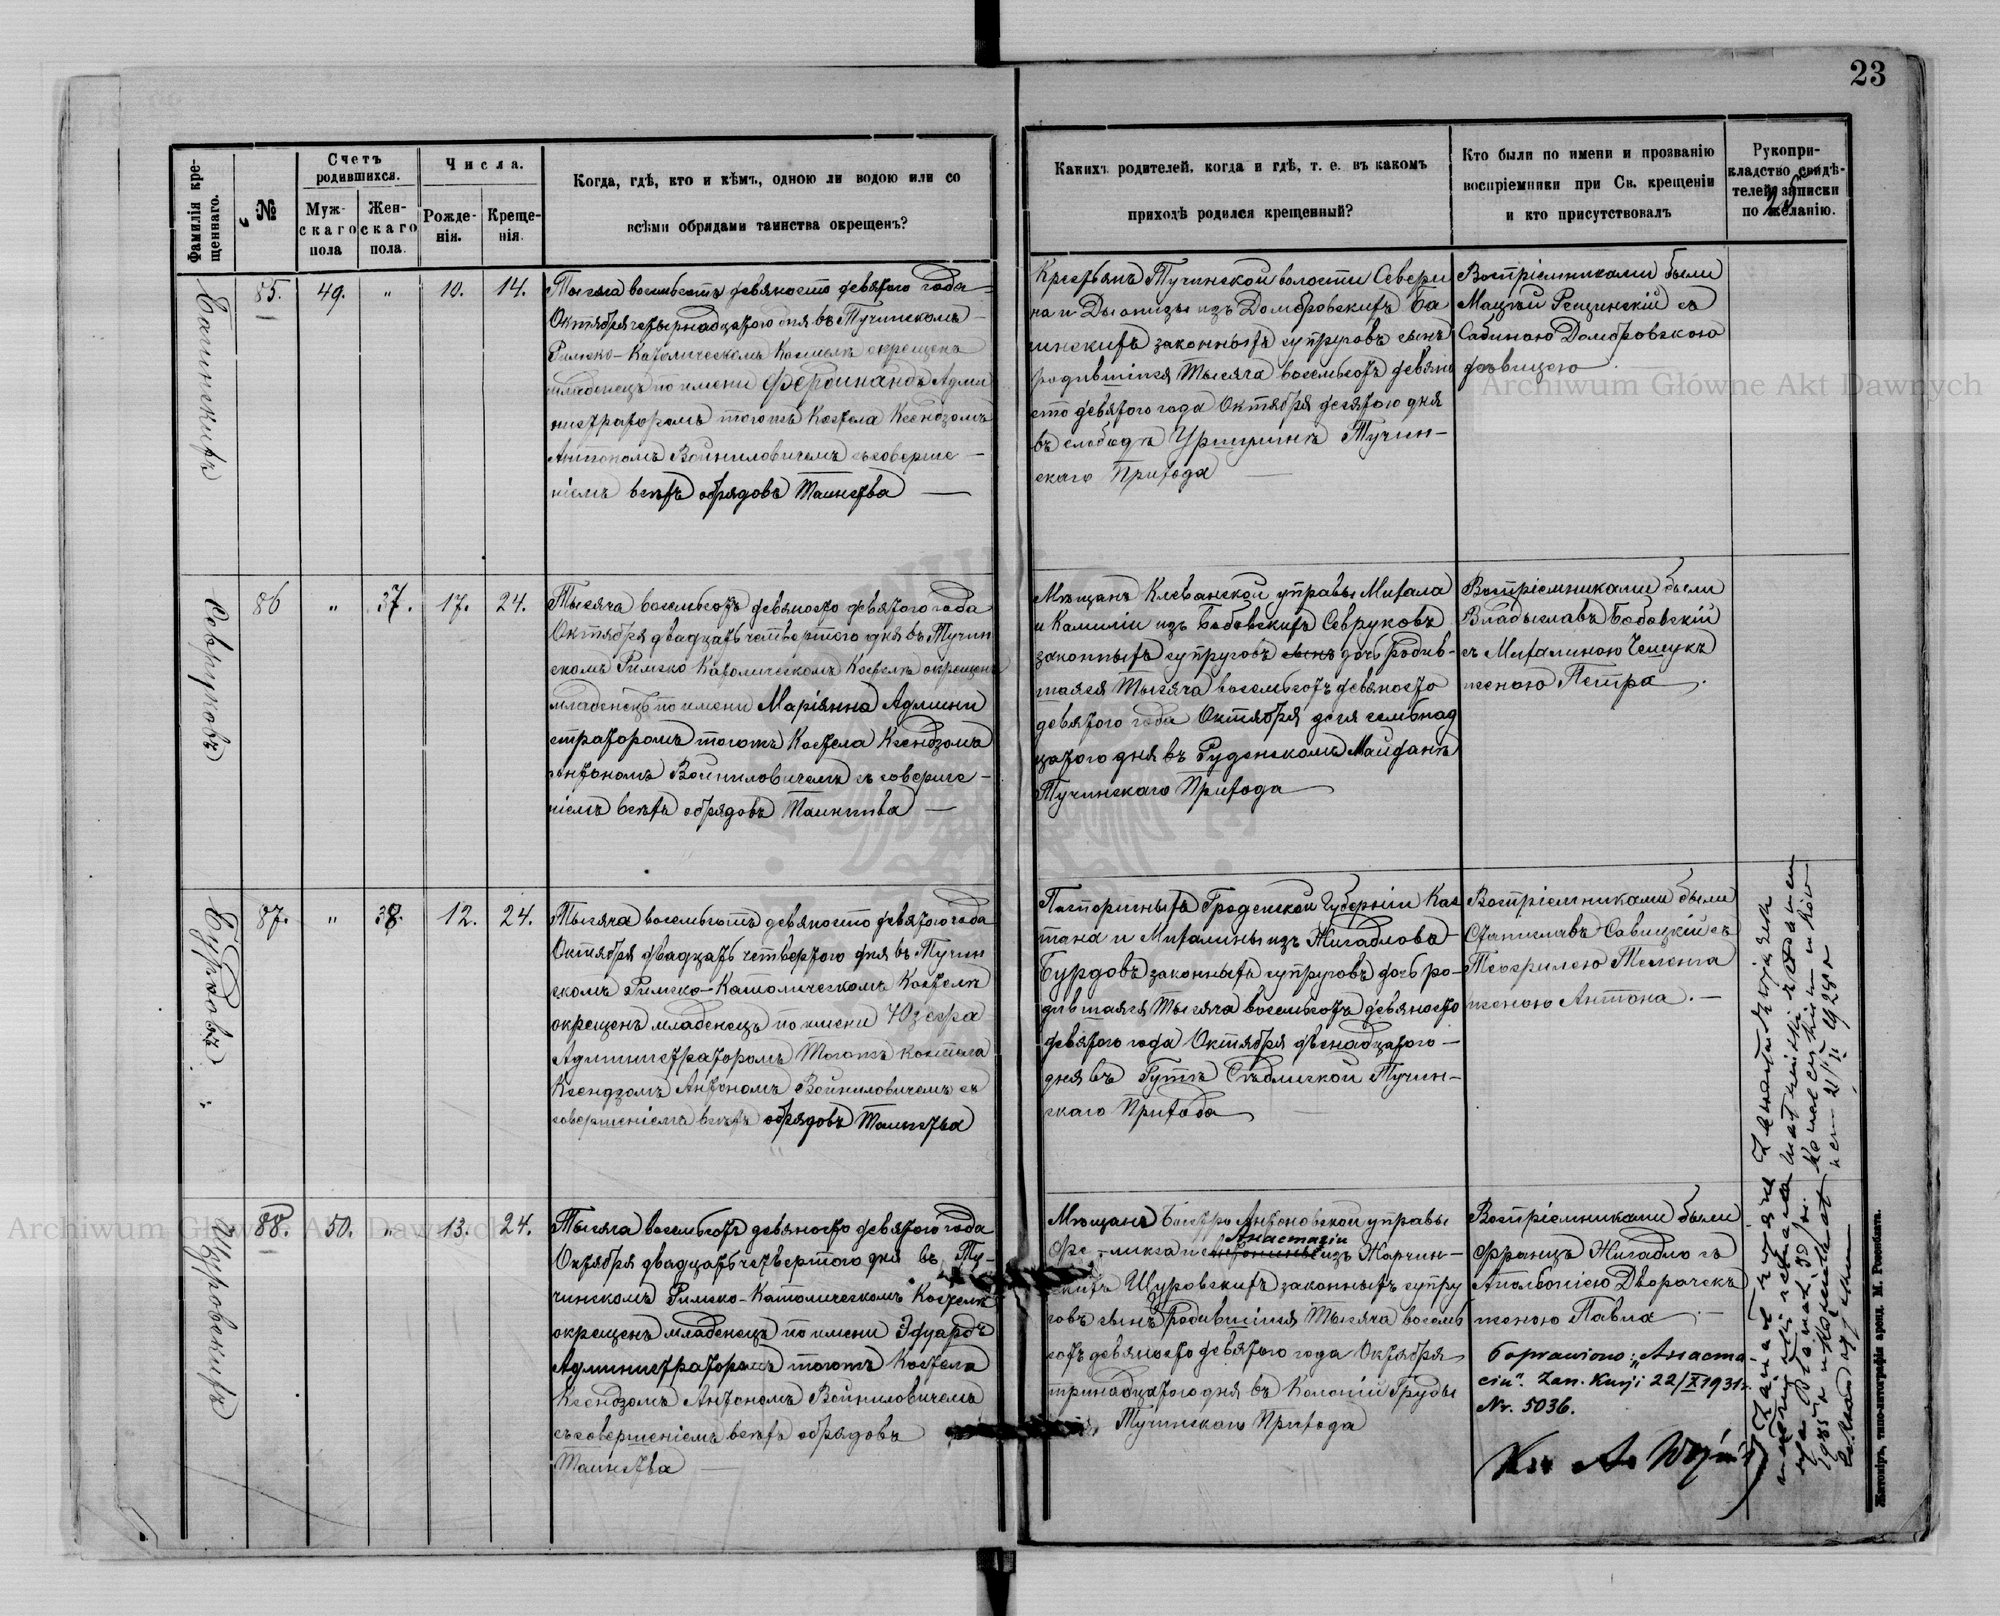 23
Фамилія кре-
щеннаго.
№
Счетъ
родившихся.
Муж-
скаго
пола
Жен-
скаго
пола.
Числа.
Рожде-
нія.
Креще-
нія.
Когда, гдѣ, кто и кѣмъ, одною ли водою или со
всѣми обрядами таинства окрещенъ?
Какихъ родителей, когда и гдѣ, т. е. въ какомъ
приходѣ родился крещенный?
Кто были по имени и прозванію
воспріемники при Св. крещеніи
и кто присутствовалъ
Рукопри-
кладство свидѣ-
телей записки
по желанію.
85.
49.
"
10.
14.
Тысяча восемьсотъ девяносто девятого года
Октября четырнадцатого дня въ Тучинскомъ
Римско-Католическомъ Костелѣ окрещенъ
младенецъ по имени Фердинандъ Адми
нистраторомъ тогожъ Костела Ксендзомъ
Антономъ Войниловичемъ съ соверше-
ніемъ всѣхъ обрядовъ Таинства
Крестьянъ Тучинской волости Севери
на и Діонизы изъ Домбровскихъ Ба
инскихъ законныхъ супруговъ сынъ
родившійся Тысяча восемьсотъ девяно
сто девятого года Октября десятого дня
въ слободѣ Тучин-
скаго Прихода
Воспріемниками были
Мацѣй Рещинскій съ
Сабиною Домбровскою
дѣвицею
Севруковъ
86
"
37.
17.
24.
Тысяча восемьсотъ девяносто девятого года
Октября двадцать четвертого дня въ Тучин
скомъ Римско Католическомъ Костелѣ окрещенъ
младенецъ по имени Маріянна Админи
страторомъ тогожъ Костела Ксендзомъ
Антономъ Войниловичемъ съ соверше-
ніемъ всѣхъ обрядовъ Таинства
Мѣщанъ Клеванской управы Михала
и Камиліи изъ Бобовскихъ Севруковъ
законныхъ супруговъ сынъ дочь родив-
шаяся Тысяча восемьсотъ девяносто
девятого года Октября дня семьнад
цатого дня въ Руденскомъ Майданѣ
Тучинскаго Прихода
Воспріемниками были
Владыславъ Бобовскій
съ Михалиною
женою Петра
Бурдовъ
87.
"
38.
12.
24.
Тысяча восемьсотъ девяносто девятого года
Октября двадцать четвертого дня въ Тучин
скомъ Римско-Католическомъ Костелѣ
окрещенъ младенецъ по имени Юзефа
Администраторомъ Тогожъ костела
Ксендзомъ Антономъ Войниловичемъ съ
совершеніемъ всѣхъ обрядовъ Таинства
Гроденской Губерніи Кае
тана и Михалины изъ Жигадловъ
Бурдовъ законныхъ супруговъ дочь ро-
дившаяся Тысяча восемьсотъ девяносто
девятого года Октября двенадцатого
дня въ Гутѣ Тучин-
скаго Прихода
Воспріемниками были
Станиславъ Савицкій съ
Теофилею Теленга
женою Антона.
Щуровскихъ
88.
50.
"
13.
24.
Тысяча восемьсотъ девяносто девятого года
Октября двадцать четвертого дня въ Ту-
чинскомъ Римско-Католическомъ Костелѣ
окрещенъ младенецъ по имени Эдуардъ
Администраторомъ тогожъ Костела
Ксендзомъ Антономъ Войниловичемъ
съ совершеніемъ всѣхъ обрядовъ
Таинства
Мѣщанъ Антоновской управы
Анастасіи
изъ Жарчин-
скихъ Щуровскихъ законныхъ супру
говъ сынъ Родившійся Тысяча восемь
сотъ девяносто девятого года Октября
тринадцатого дня въ Колоніи Груды
Тучинскаго Прихода
Воспріемниками были
Францъ Жигадло съ
Аполоніею Дворачекъ
женою Павла
Zarz. Kurji 22/X 1931 r.
Nr. 5036.
Житоміръ, типо-литографія аренд. М. Роненблата.
Archiwum Główne Akt Dawnych
Archiwum Główne Akt Dawnych